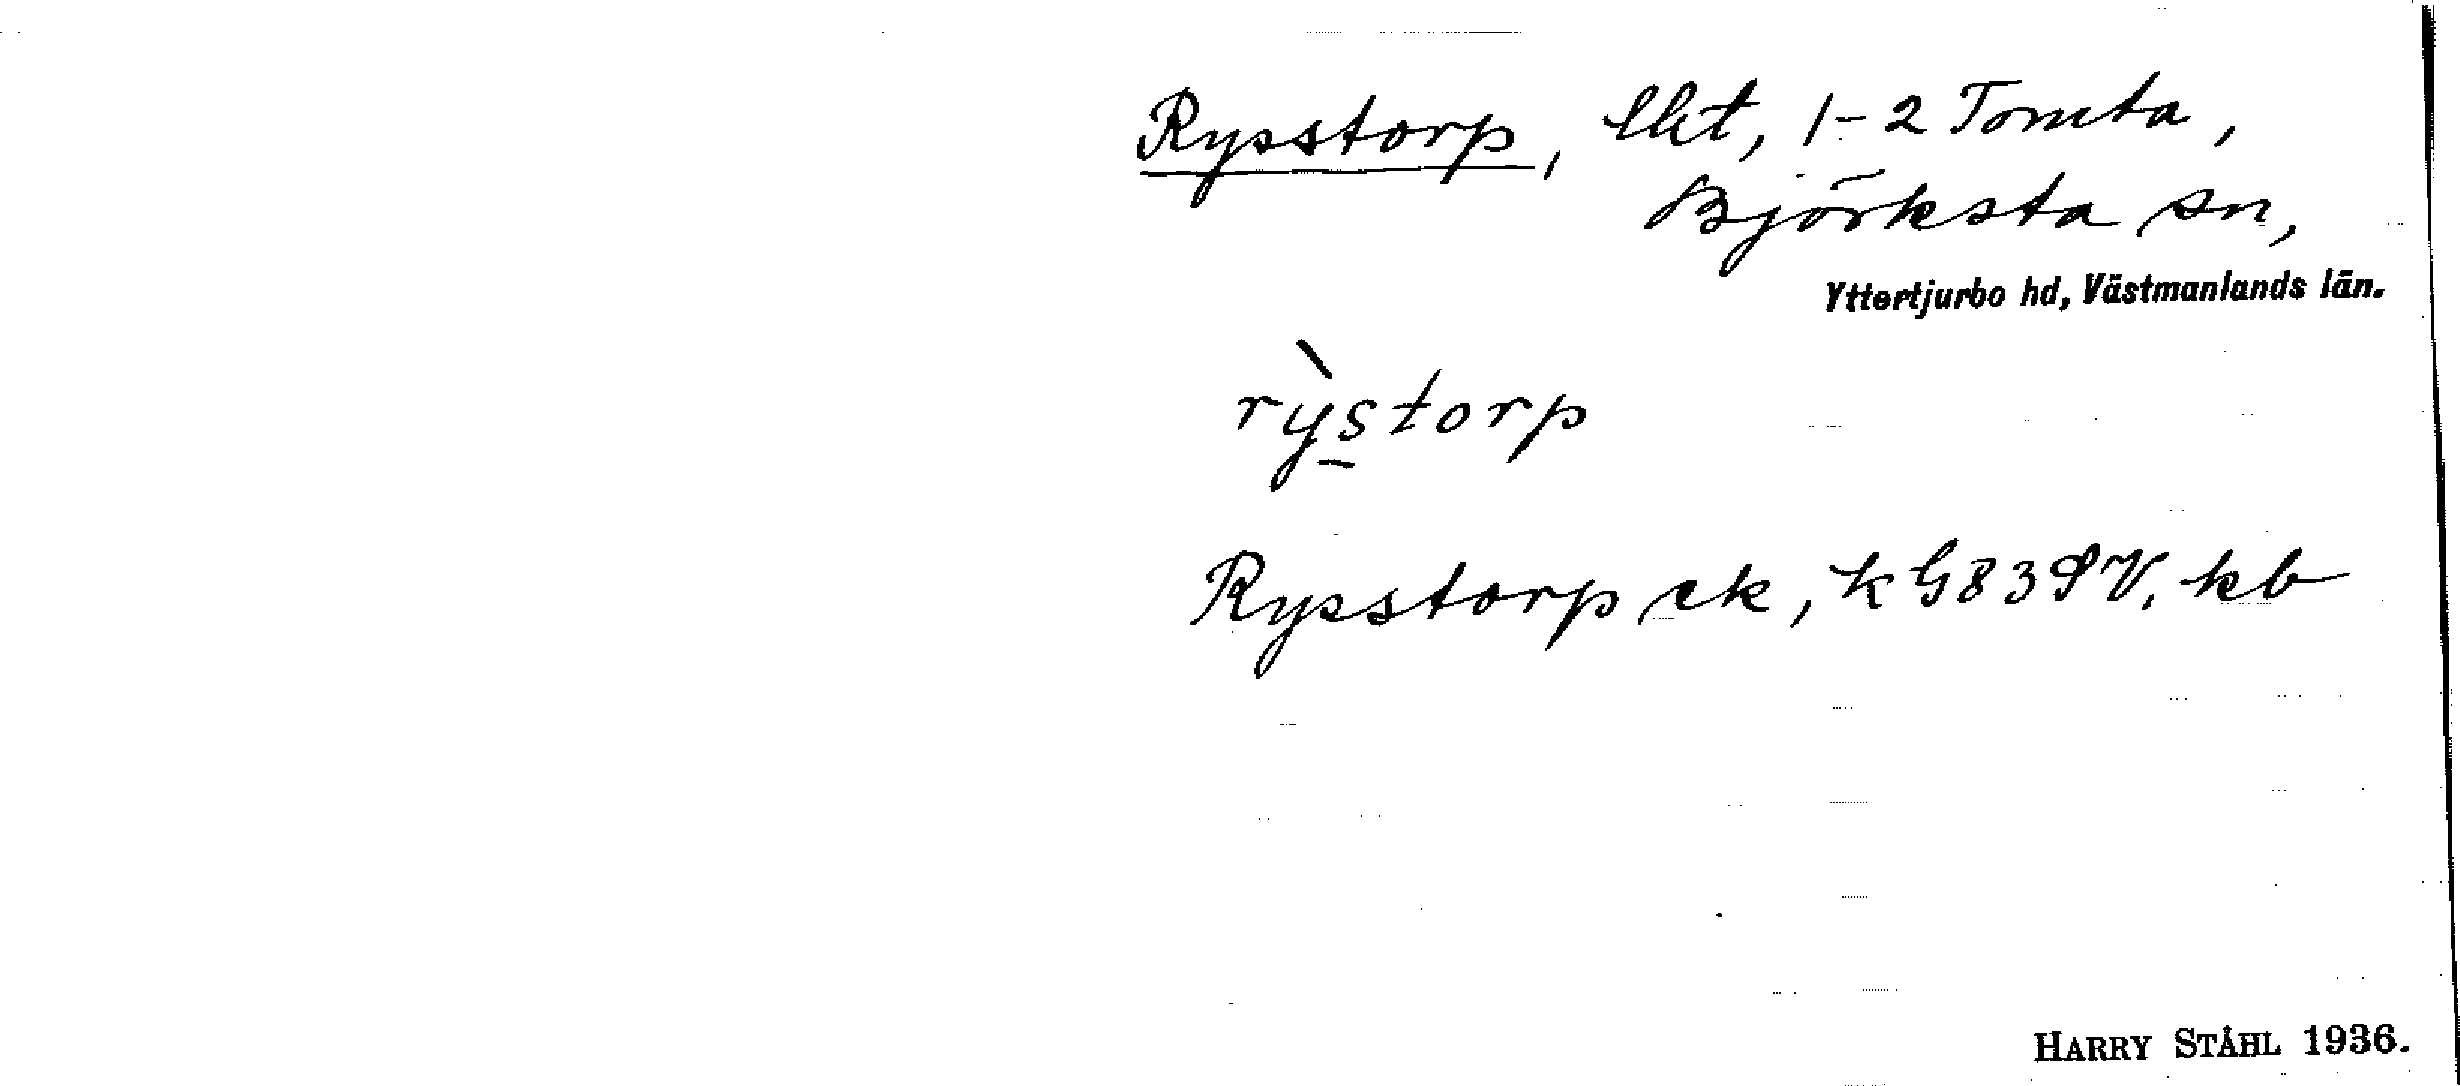 Rysstorp, lht, 1-2 Tomta,
Björksta sn,
Yttertjurbo hd, Västmanlands län.
rỳstorp
Rysstorp ek, k G83SV, kb
HARRY STÅHL 1936.